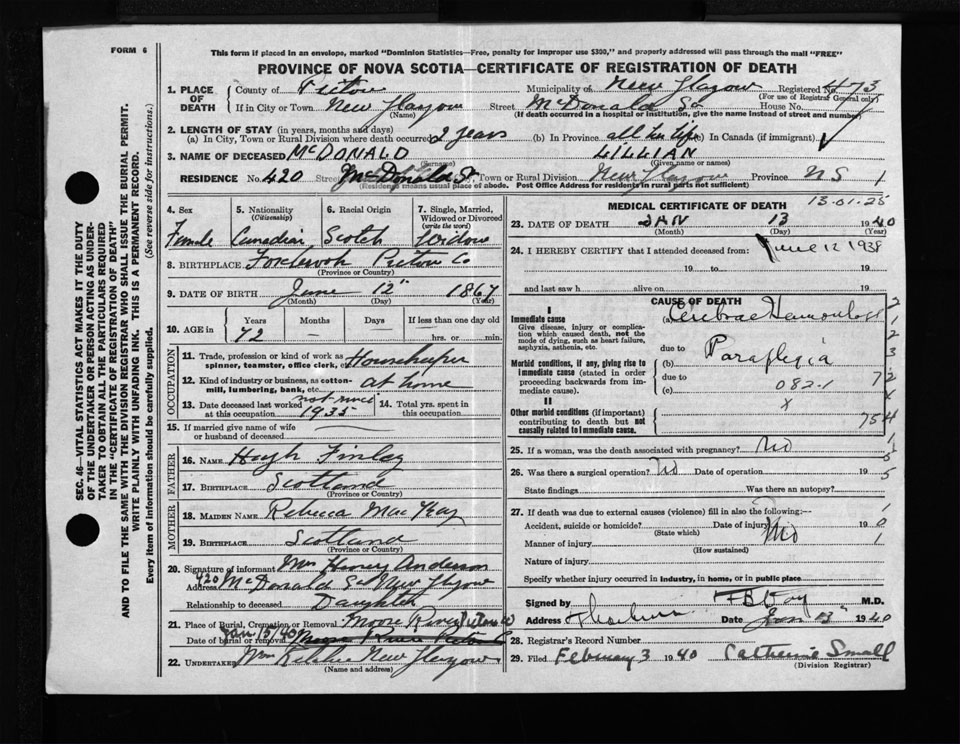 FORM 6
This form if placed in an envelope, marked "Dominion Statistics—Free, penalty for improper use $300," and properly addressed will pass through the mail "FREE"
PROVINCE OF NOVA SCOTIA—CERTIFICATE OF REGISTRATION OF DEATH
SEC. 46—VITAL STATISTICS ACT MAKES IT THE DUTY
OF THE UNDERTAKER OR PERSON ACTING AS UNDER-
TAKER TO OBTAIN ALL THE PARTICULARS REQUIRED
IN THE "CERTIFICATE OF REGISTRATION OF DEATH"
AND TO FILE THE SAME WITH THE DIVISION REGISTRAR WHO SHALL ISSUE THE BURIAL PERMIT.
WRITE PLAINLY WITH UNFADING INK. THIS IS A PERMANENT RECORD.
Every item of information should be carefully supplied. (See reverse side for instructions.)
1. PLACE OF DEATH County of Pictou Municipality of New Glasgow Registered No. 473
(For use of Registrar General only)
If in City or Town New Glasgow Street McDonald St House No.
(Name) (If death occurred in a hospital or institution, give the name instead of street and number)
2. LENGTH OF STAY (in years, months and days)
(a) In City, Town or Rural Division where death occurred 2 years (b) In Province all her life (c) In Canada (if immigrant)
3. NAME OF DECEASED McDONALD LILLIAN
(Surname) (Given name or names)
RESIDENCE No. 420 Street McDonald St. Town or Rural Division New Glasgow Province NS 1
(Residence means usual place of abode. Post Office Address for residents in rural parts not sufficient)
4. Sex 5. Nationality (Citizenship) 6. Racial Origin 7. Single, Married, Widowed or Divorced (write the word)
Female Canadian Scotch Widow
8. BIRTHPLACE Pictou Co
(Province or Country)
9. DATE OF BIRTH June 12" 1867
(Month) (Day) (Year)
10. AGE in Years Months Days If less than one day old
72 hrs. or min.
OCCUPATION
11. Trade, profession or kind of work as spinner, teamster, office clerk, etc. Housekeeper
12. Kind of industry or business, as cotton-mill, lumbering, bank, etc. at home
13. Date deceased last worked at this occupation not since 1935 14. Total yrs. spent in this occupation
15. If married give name of wife or husband of deceased
FATHER
16. NAME Hugh Finlay
17. BIRTHPLACE Scotland
(Province or Country)
MOTHER
18. MAIDEN NAME Rebecca MacKay
19. BIRTHPLACE Scotland
(Province or Country)
20. Signature of informant Mrs Harvey Anderson
Address 420 McDonald St New Glasgow
Relationship to deceased Daughter
21. Place of Burial, Cremation or Removal Moose River Pictou Co
Date of burial or removal Jan 15/40
22. UNDERTAKER New Glasgow
(Name and address)
MEDICAL CERTIFICATE OF DEATH 13-01-25
23. DATE OF DEATH JAN 13 1940
(Month) (Day) (Year)
24. I HEREBY CERTIFY that I attended deceased from: June 12 1938
19 to 19
and last saw h alive on 19
CAUSE OF DEATH
I
Immediate cause
Give disease, injury or complication which caused death, not the mode of dying, such as heart failure, asphyxia, asthenia, etc.
(a) Cerebral Hemorrhage
due to
Morbid conditions, if any, giving rise to immediate cause (stated in order proceeding backwards from immediate cause).
(b) Paraplegia
due to
(c) 082-1
II
Other morbid conditions (if important) contributing to death but not causally related to immediate cause.
25. If a woman, was the death associated with pregnancy? No
26. Was there a surgical operation? No Date of operation 19
State findings Was there an autopsy?
27. If death was due to external causes (violence) fill in also the following:—
Accident, suicide or homicide? Date of injury 19
(State which)
Manner of injury No
(How sustained)
Nature of injury
Specify whether injury occurred in industry, in home, or in public place
Signed by M.D.
Address Date Jan 13" 1940
28. Registrar's Record Number
29. Filed February 3 1940 Catherine Small
(Division Registrar)